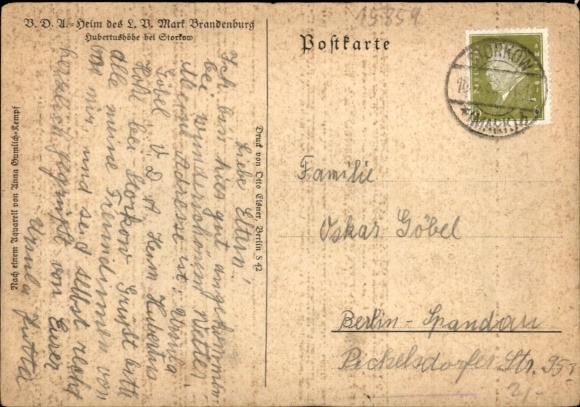 V. D. A.-Heim des L. V. Mark Brandenburg
Hubertushöhe bei Storkow
15859
Postkarte
STORKOW
(MARK)
Nach einem Aquarell von Anna Gumlich-Kempf
Druck von Otto Elsner, Berlin S 42
Liebe Eltern!
Ich bin hier gut angekommen
bei wunderschönem Wetter.
Meine Adresse ist: Ursula
Göbel V. D. A. Heim Hubertus
Höh bei Storkow Grüßt bitte
alle meine Freundinnen von
von mir und seid selbst recht
herzlich gegrüßt von Eurer
Ursula
Familie
Oskar Göbel
Berlin-Spandau
Pichelsdorfer Str.